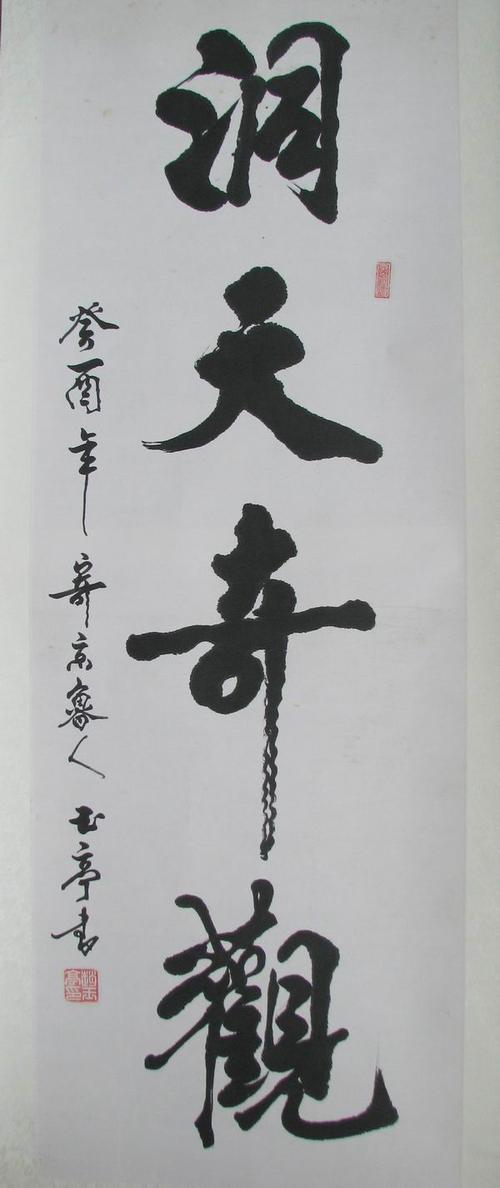 洞天奇觀
癸酉年寄京魯人玉亭书